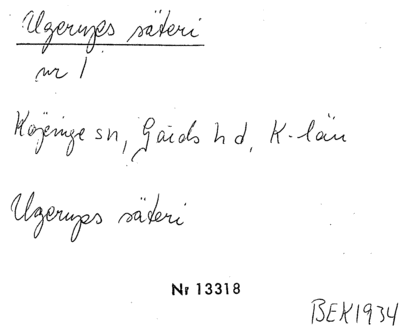 Ugerups säteri
nr 1
Köpinge sn, Gärds hd, K-län
Ugerups säteri
Nr 13318
BEK1934